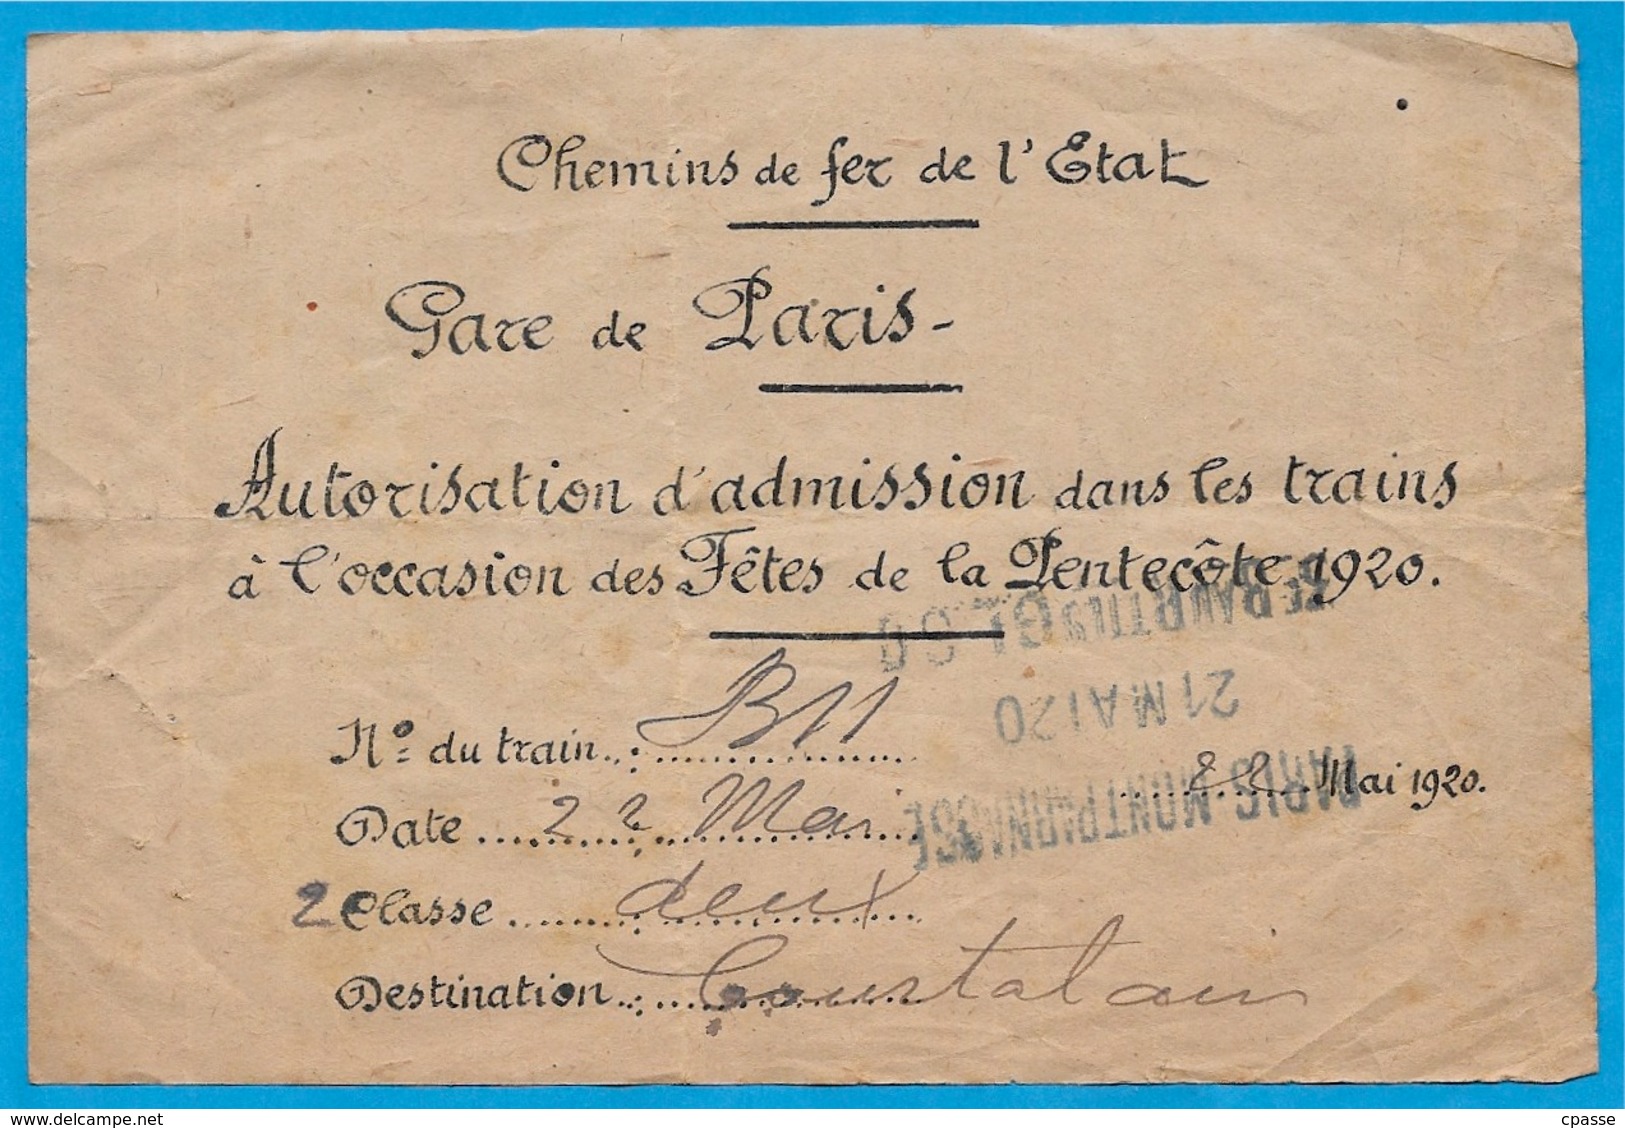 Chemins de fer de l'Etat
Gare de Paris-
Autorisation d'admission dans les trains
à l'occasion des Fêtes de la Pentecôte 1920.
N° du train : B11
21 MAI 20
22 Mai 1920.
Date 22 Mai
PARIS-MONTPARNASSE
2 Classe deux
Destination : Courtalain
www.delcampe.net
cpasse